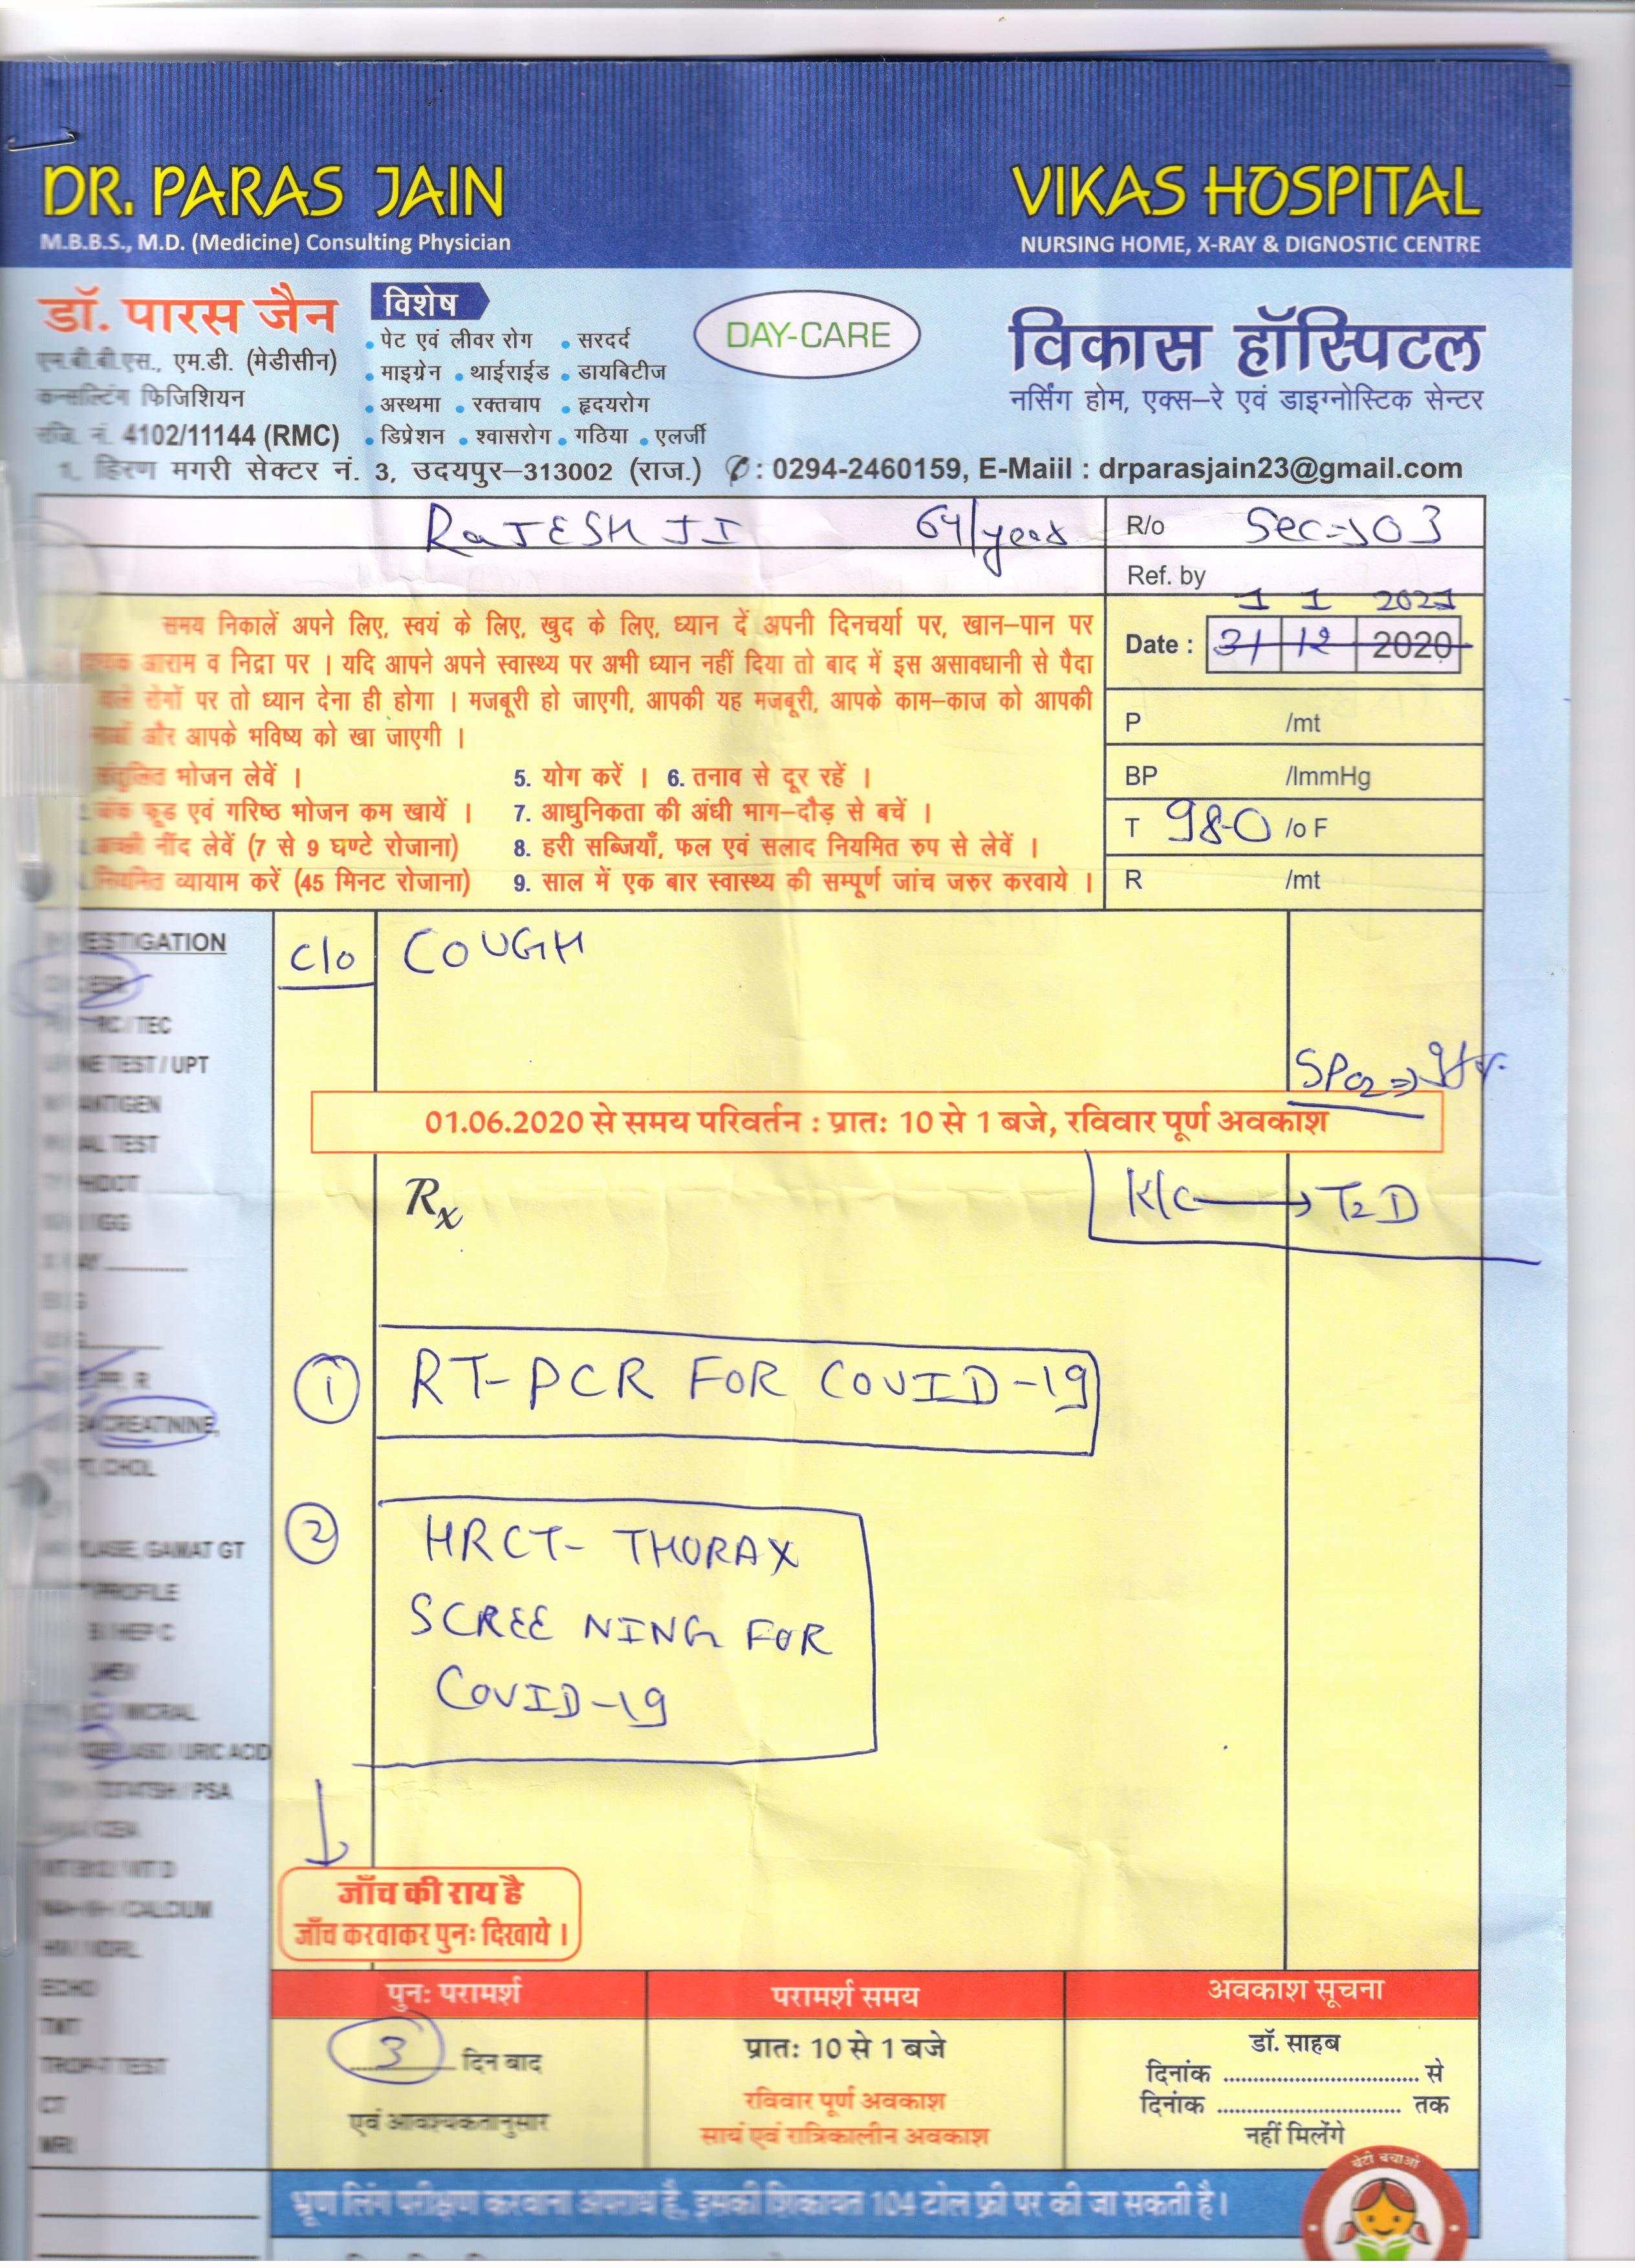 DR. PARAS JAIN
M.B.B.S., M.D. (Medicine) Consulting Physician
VIKAS HOSPITAL
NURSING HOME, X-RAY & DIGNOSTIC CENTRE
डॉ. पारस जैन
एम.बी.बी.एस., एम.डी. (मेडीसीन)
कन्सल्टिंग फिजिशियन
रजि. नं. 4102/11144 (RMC)
विशेष
• पेट एवं लीवर रोग • सरदर्द
• माइग्रेन • थाईराईड • डायबिटीज
• अस्थमा • रक्तचाप • हृदयरोग
• डिप्रेशन • श्वासरोग • गठिया • एलर्जी
DAY-CARE
विकास हॉस्पिटल
नर्सिंग होम, एक्स-रे एवं डाइग्नोस्टिक सेन्टर
1, हिरण मगरी सेक्टर नं. 3, उदयपुर-313002 (राज.) ✆ : 0294-2460159, E-Maiil : drparasjain23@gmail.com
RaJESH JI 64/year
R/o Sec→03
Ref. by
1 1 2021
Date : 31 12 2020
P /mt
BP /ImmHg
T 98.0 /o F
R /mt
समय निकालें अपने लिए, स्वयं के लिए, खुद के लिए, ध्यान दें अपनी दिनचर्या पर, खान-पान पर
आराम व निद्रा पर । यदि आपने अपने स्वास्थ्य पर अभी ध्यान नहीं दिया तो बाद में इस असावधानी से पैदा
वाले रोगों पर तो ध्यान देना ही होगा । मजबूरी हो जाएगी, आपकी यह मजबूरी, आपके काम-काज को आपकी
और आपके भविष्य को खा जाएगी ।
संतुलित भोजन लेवें ।
5. योग करें । 6. तनाव से दूर रहें ।
फूड एवं गरिष्ठ भोजन कम खायें ।
7. आधुनिकता की अंधी भाग-दौड़ से बचें ।
नींद लेवें (7 से 9 घण्टे रोजाना)
8. हरी सब्जियाँ, फल एवं सलाद नियमित रुप से लेवें ।
नियमित व्यायाम करें (45 मिनट रोजाना)
9. साल में एक बार स्वास्थ्य की सम्पूर्ण जांच जरुर करवाये ।
C/o COUGH
SPO2⇒
01.06.2020 से समय परिवर्तन : प्रातः 10 से 1 बजे, रविवार पूर्ण अवकाश
Rx
K/C → T2D
① RT-PCR FOR COVID-19
② HRCT- THORAX
SCREENING FOR
COVID-19
जाँच की राय है
जाँच करवाकर पुनः दिखाये ।
ESTIGATION
ESR
/ TEC
TEST / UPT
ANTIGEN
TEST
CREATININE,
CHOL
GAMAT GT
PROFILE
HEP C
MICRAL
URIC ACID
PSA
CALCIUM
ECHO
TMT
TROP-T TEST
CT
MRI
पुनः परामर्श
3 दिन बाद
एवं आवश्यकतानुसार
परामर्श समय
प्रातः 10 से 1 बजे
रविवार पूर्ण अवकाश
सायं एवं रात्रिकालीन अवकाश
अवकाश सूचना
डॉ. साहब
दिनांक ................................ से
दिनांक ................................ तक
नहीं मिलेंगे
बेटी बचाओ
भ्रूण लिंग परीक्षण करवाना अपराध है, इसकी शिकायत 104 टोल फ्री पर की जा सकती है।